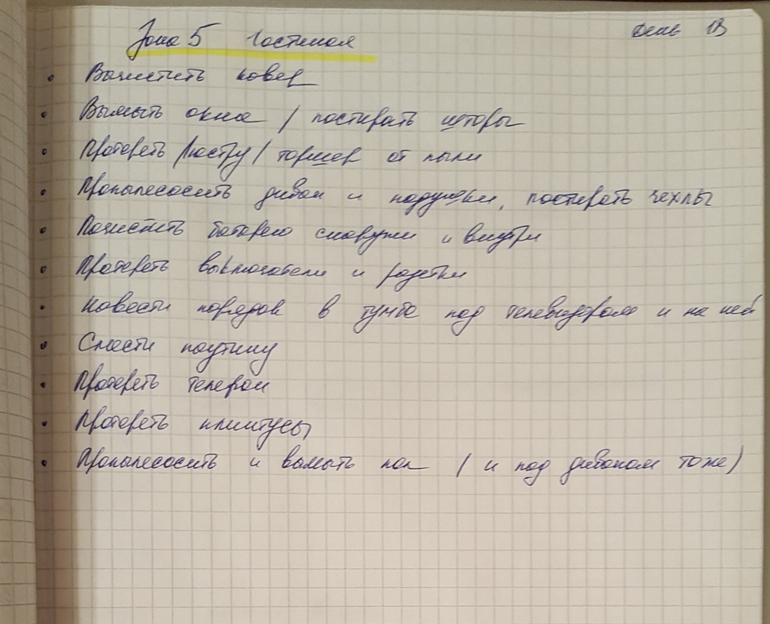 Зона 5 Гостиная день 13
• Вычистить ковер
• Вымыть окна / постирать шторы
• Протереть люстру / торшер от пыли
• Пропылесосить диван и подушки, постирать чехлы
• Почистить батарею снаружи и внутри
• Протереть выключатели и розетки
• Навести порядок в тумбе под телевизором и на ней
• Смести паутину
• Протереть телефон
• Протереть плинтусы
• Пропылесосить и вымыть пол (и под диваном тоже)